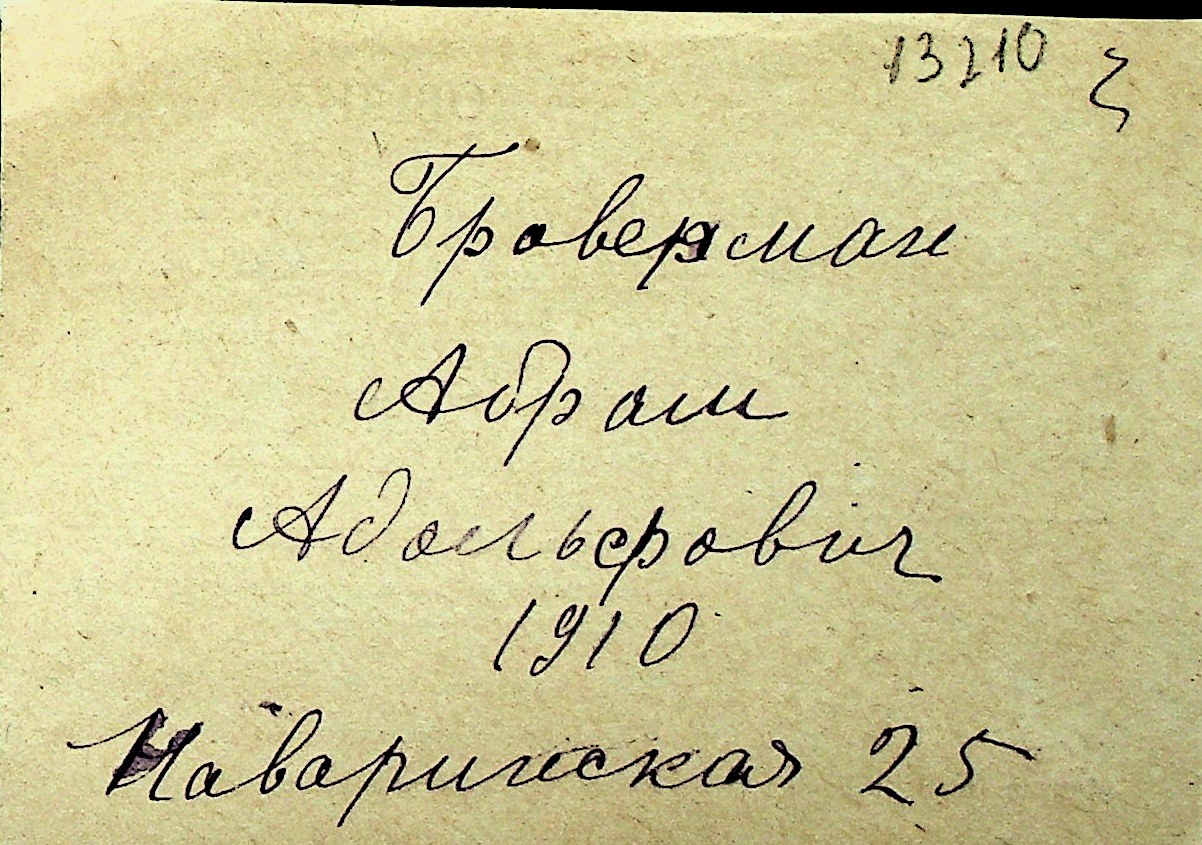 13210
Броверман
Абрам
Адольфович
1910
Наваринская 25